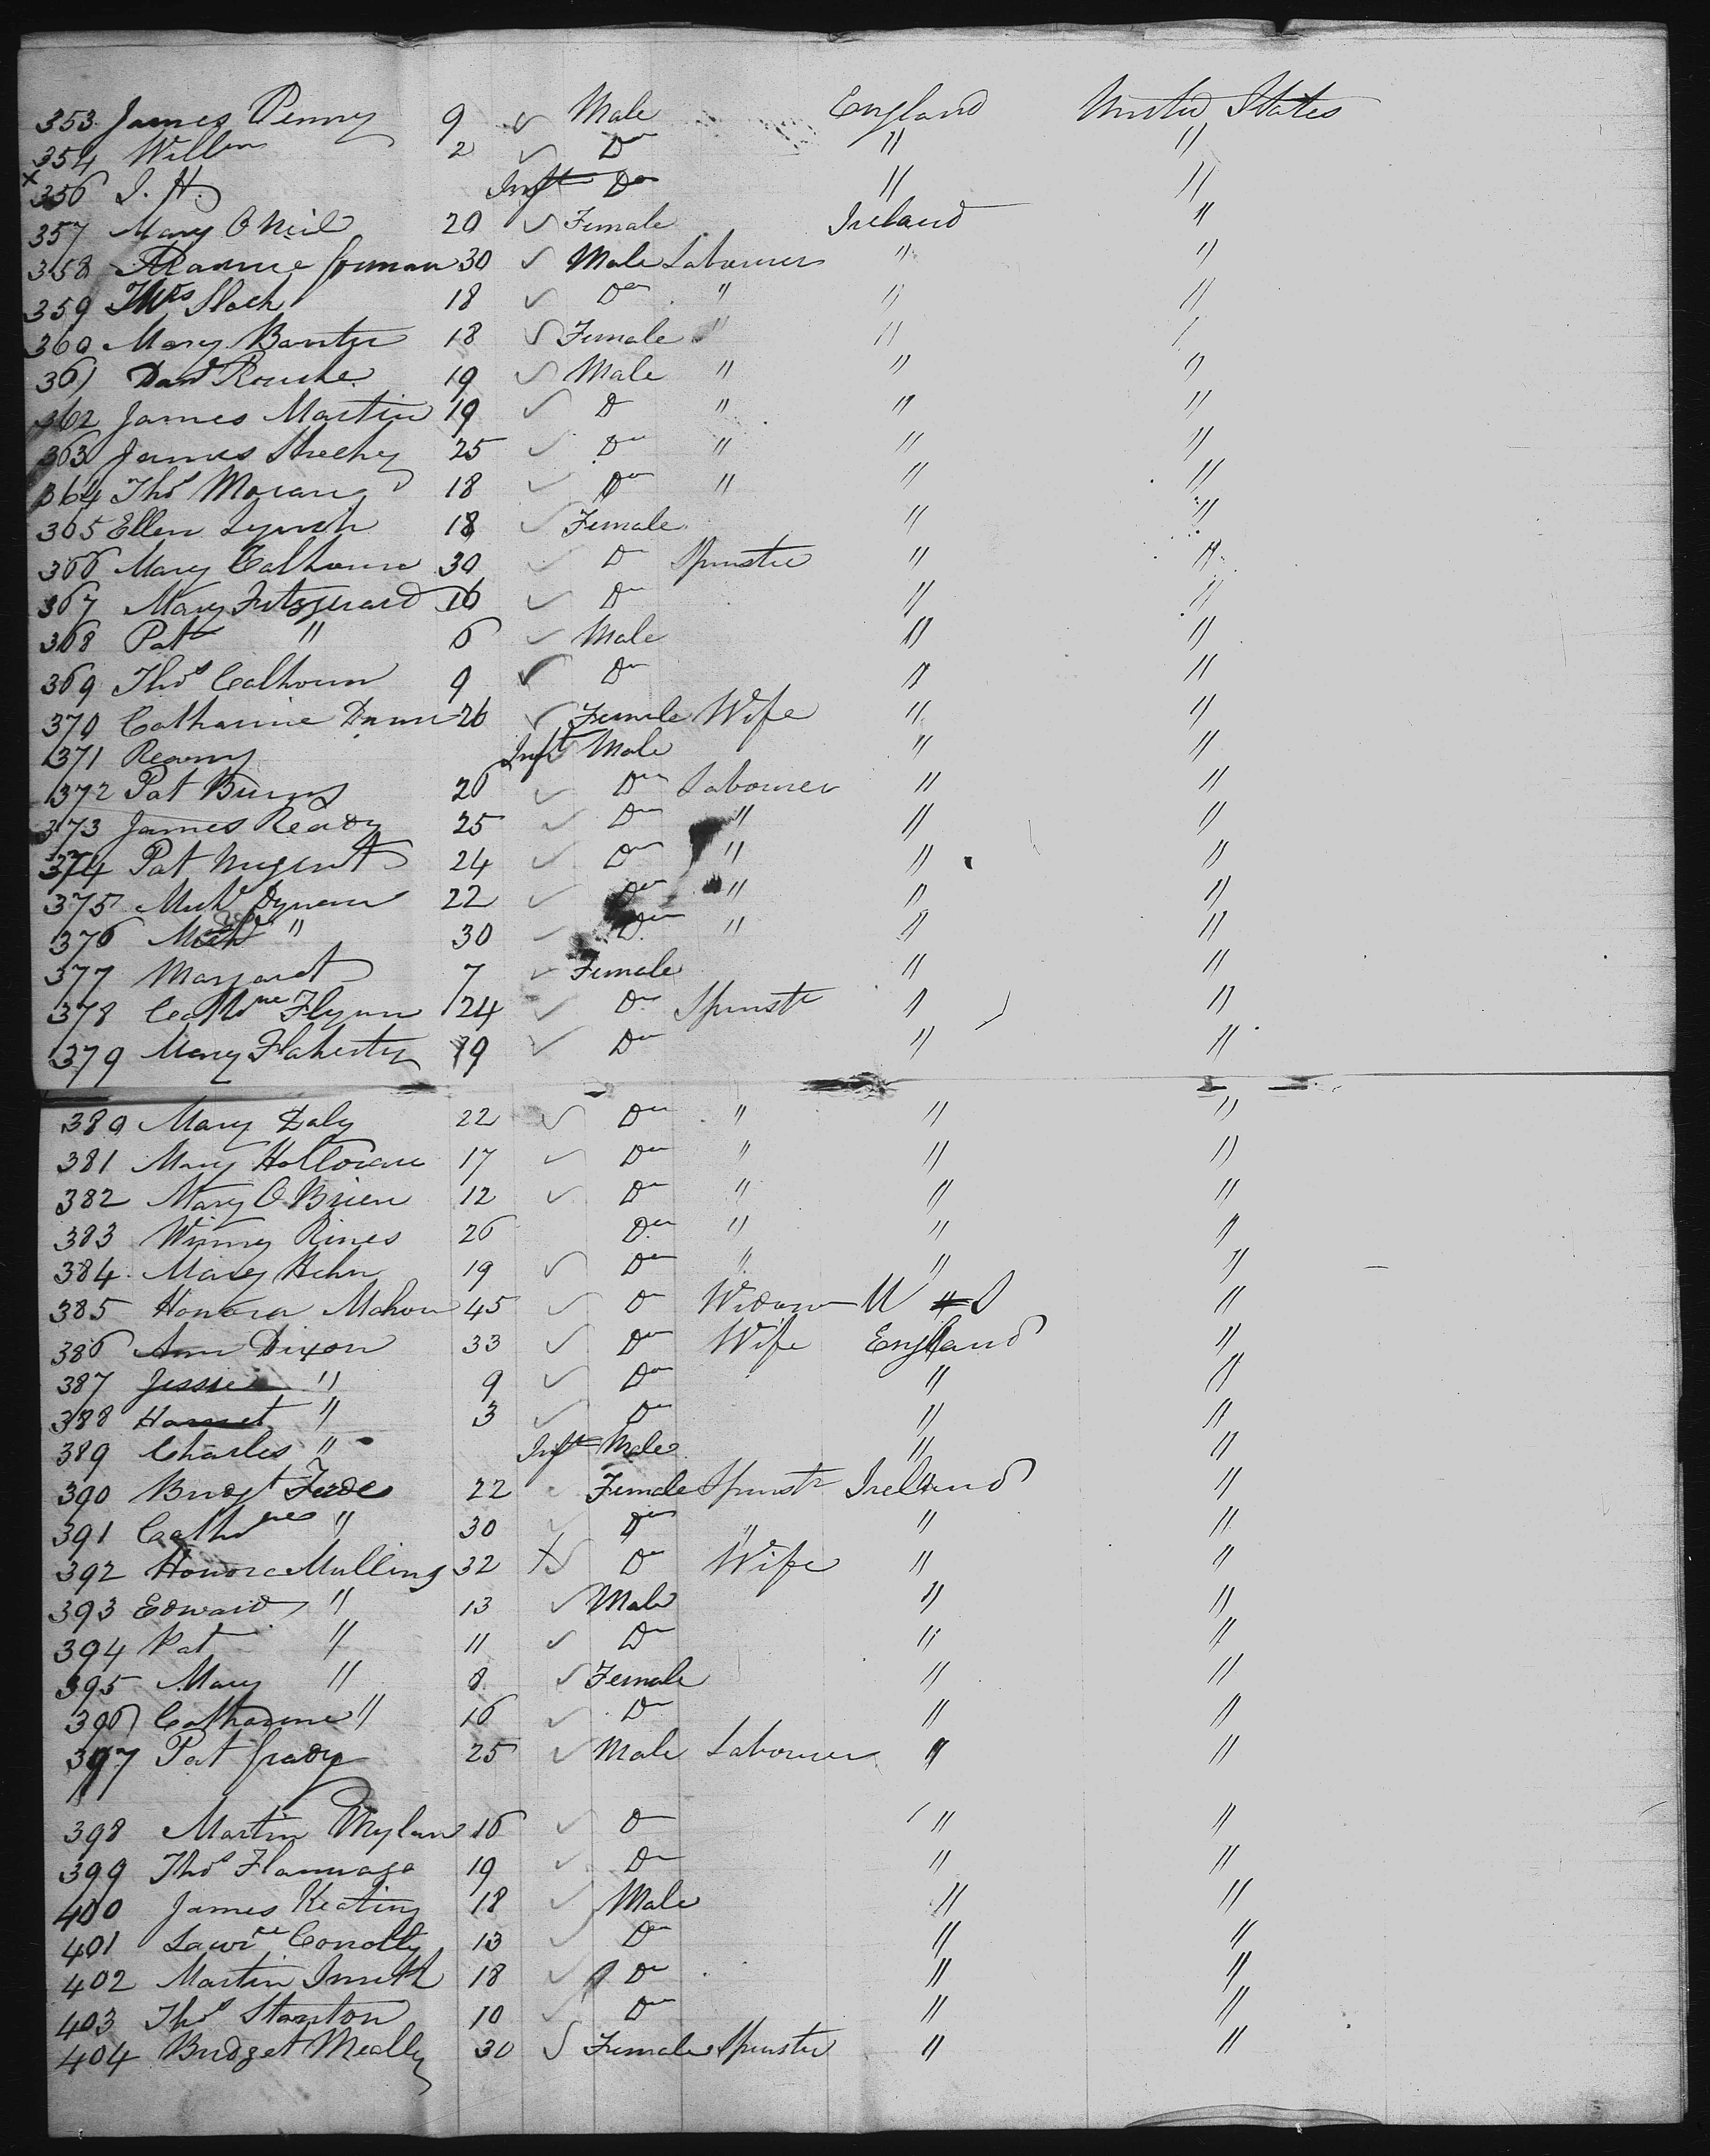 353 James Penny 9 ✓ Male England United States
354 Willm 2 ✓ Do " "
x 356 J. H. Inft Do " "
357 Mary O Neil 20 ✓ Female Ireland "
358 Gorman 30 ✓ Male Labourer " "
359 Thos Slach 18 ✓ Do " " "
360 Mary Banter 18 ✓ Female " " "
361 Dand Rourke 19 ✓ Male " " "
362 James Martin 19 ✓ D " " "
363 James Sheehy 25 ✓ Do " " "
364 Thos Moran 18 ✓ Do " " "
365 Ellen Lynch 18 ✓ Female " "
366 Mary Calhoun 30 ✓ D Spinster " "
367 Mary Fitzgerard 16 ✓ Do " "
368 Pat " 6 ✓ Male " "
369 Thos Calhoun 9 ✓ Do " "
370 Catharine Dunn 26 ✓ Female Wife " "
371 Inft Male " "
372 Pat Burns 26 ✓ Do Labourer " "
373 James Ready 25 ✓ Do " " "
374 Pat Nugent 24 ✓ Do " " "
375 Michl Dynan 22 ✓ Do " " "
376 " 30 ✓ Do " " "
377 Margaret 7 ✓ Female " "
378 Cathne Flynn 24 ✓ Do Spinstr " "
379 Mary Flaherty 19 ✓ Do " "
380 Mary Daly 22 ✓ Do " " "
381 Mary Holloran 17 ✓ Do " " "
382 Mary O Brien 12 ✓ Do " " "
383 Winny Rines 26 Do " " "
384 Mary Hehn 19 ✓ Do " " "
385 Honora Mahon 45 ✓ D Widow U S "
386 Ann Dixon 33 ✓ Do Wife England "
387 Jessie " 9 ✓ Do " "
388 Harriet " 3 ✓ Do " "
389 Charles " Inft Male " "
390 Bridgt 22 Female Spinstr Ireland "
391 Cathne " 30 ✓ Do " " "
392 Honora Mullins 32 x ✓ Do Wife " "
393 Edward " 13 ✓ Male " "
394 Pat " 11 ✓ Do " "
395 Mary " 8 ✓ Female " "
396 Catharine " 16 ✓ Do " "
397 Pat Grady 25 ✓ Male Labourer " "
398 Martin Mylan 16 ✓ D " "
399 Thos Flannaga 19 ✓ Do " "
400 James Keating 18 ✓ Male " "
401 Lawrce Conolly 13 ✓ Do " "
402 Martin Smith 18 ✓ Do " "
403 Thos Stanton 10 ✓ Do " "
404 Bridget Meally 30 ✓ Female Spinster " "